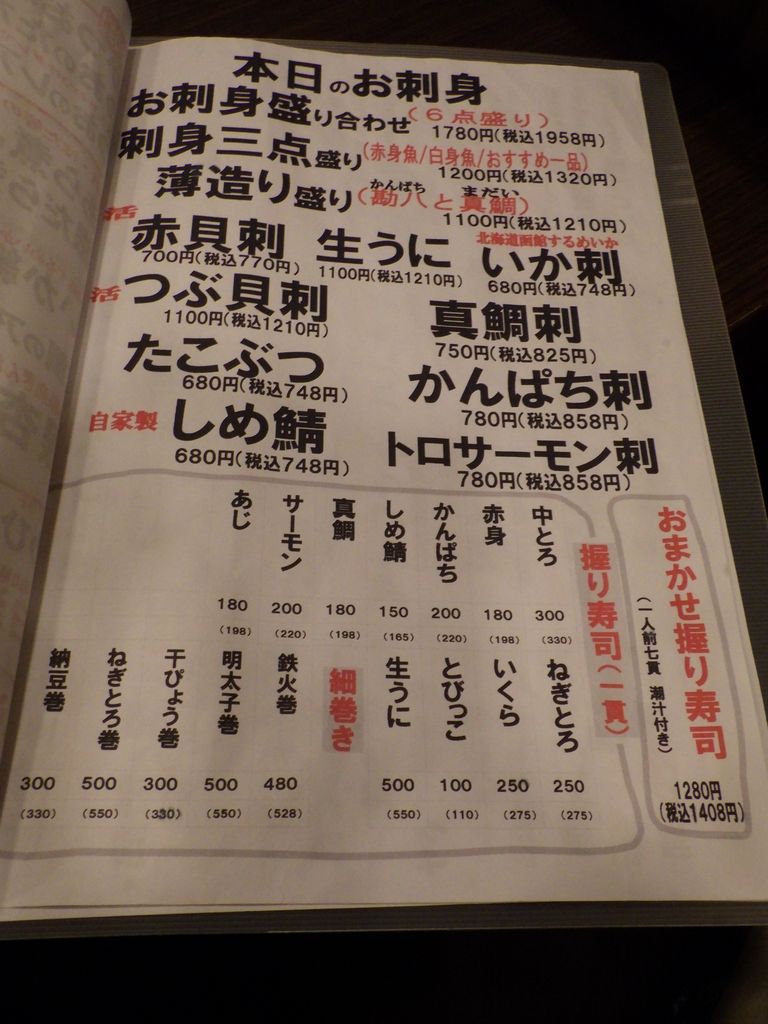 本日のお刺身
お刺身盛り合わせ(6点盛り)
1780円(税込1958円)
刺身三点盛り(赤身魚/白身魚/おすすめ一品)
1200円(税込1320円)
薄造り盛り(勘八と真鯛)
かんぱち まだい
1100円(税込1210円)
活 赤貝刺
700円(税込770円)
生うに
1100円(税込1210円)
北海道函館するめいか
いか刺
680円(税込748円)
活 つぶ貝刺
1100円(税込1210円)
真鯛刺
750円(税込825円)
たこぶつ
680円(税込748円)
かんぱち刺
780円(税込858円)
自家製 しめ鯖
680円(税込748円)
トロサーモン刺
780円(税込858円)
おまかせ握り寿司
(一人前七貫 潮汁付き)
1280円
(税込1408円)
握り寿司(一貫)
中とろ 300 (330)
赤身 180 (198)
かんぱち 200 (220)
しめ鯖 150 (165)
真鯛 180 (198)
サーモン 200 (220)
あじ 180 (198)
ねぎとろ 250 (275)
いくら 250 (275)
とびっこ 100 (110)
生うに 500 (550)
細巻き
鉄火巻 480 (528)
明太子巻 500 (550)
干ぴょう巻 300 (330)
ねぎとろ巻 500 (550)
納豆巻 300 (330)